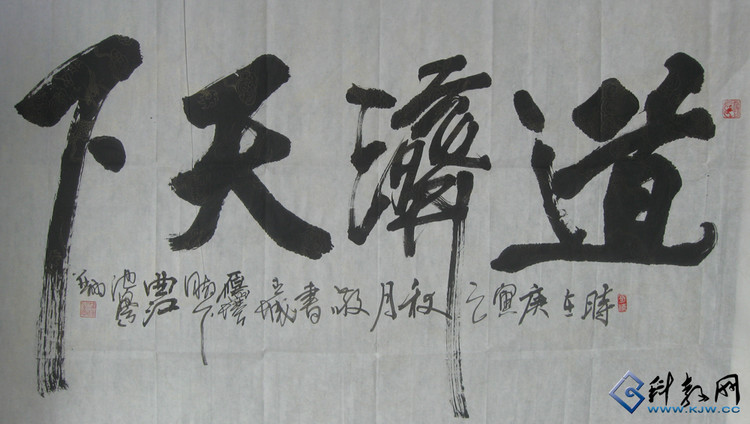 道濟天下
時在庚寅之秋月敬書王城雁塔
科教网
WWW.KJW.CC